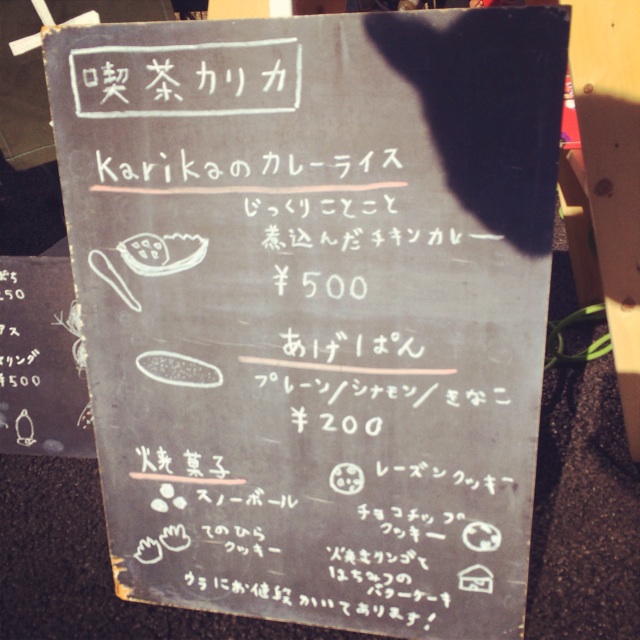 喫茶カリカ
Karikaのカレーライス
じっくりことこと
煮込んだチキンカレー
¥500
あげぱん
プレーン/シナモン/きなこ
¥200
焼菓子
スノーボール
てのひら
クッキー
レーズンクッキー
チョコチップ
クッキー
火焼きリンゴと
はちみつの
バターケーキ
ウラにお値段かいてあります!
50
アス
リング
¥500